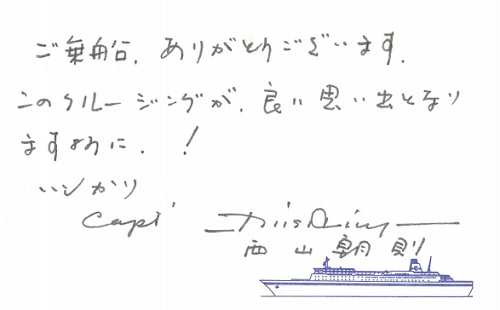 ご乗船、ありがとうございます。
このクルージングが、良い思い出となり
ますように、!
Capt
西山朝則